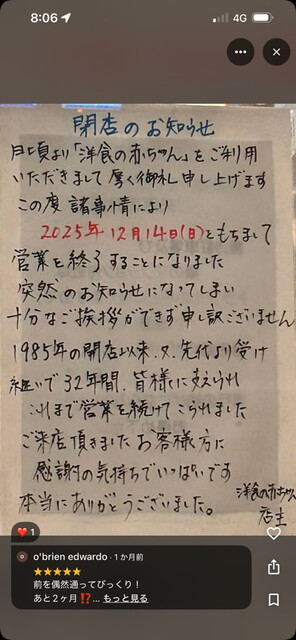 8:06
4G
閉店のお知らせ
日頃より「洋食の赤ちゃん」をご利用
いただきまして厚く御礼申し上げます
この度 諸事情により
2025年12月14日(日)ともちまして
営業を終了することになりました
突然のお知らせになってしまい
十分なご挨拶ができず申し訳ございません
1985年の開店以来、又、先代より受け
継いで32年間、皆様に支えられ
これまで営業を続けてこられました
ご来店頂きましたお客様方に
感謝の気持ちでいっぱいです
本当にありがとうございました。
洋食の赤ちゃん
店主
1
o'brien edwardo · 1 か月前
★★★★★
前を偶然通ってびっくり！
あと2ヶ月⁉️... もっと見る